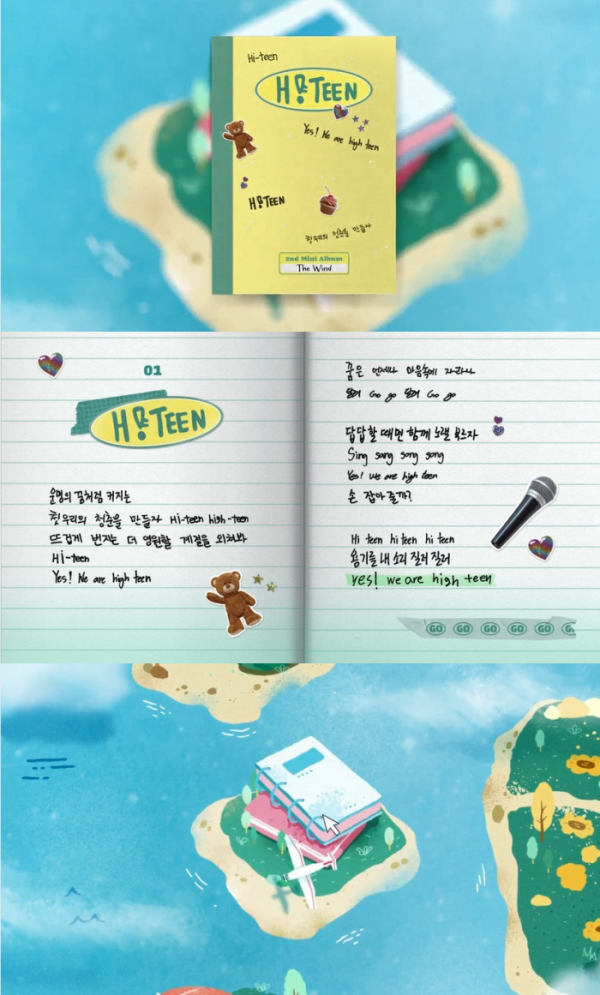 Hi-teen
Hi-TEEN
Yes! We are high teen
Hi-TEEN
청우리의 청춘을 만들자
2nd Mini Album
The Wind
01
Hi-TEEN
운명의 꿈처럼 커지는
청우리의 청춘을 만들자 Hi-teen high-teen
뜨겁게 번지는 더 영원할 계절을 외쳐봐
Hi-teen
Yes! We are high teen
꿈은 언제나 마음속에 자라나
Go go Go go
답답할 때면 함께 노랠 부르자
Sing sang song song
Yes! we are high teen
손 잡아 줄까?
Hi teen hi teen hi teen
용기를 내 소리 질러 질러
yes! we are high teen
GO GO GO GO GO G